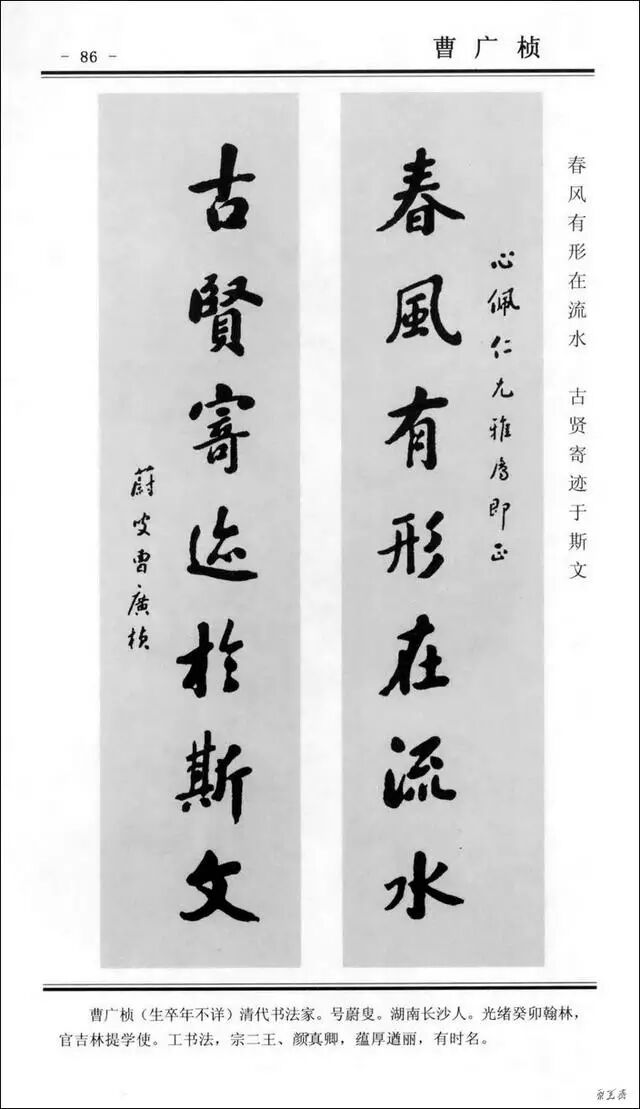 - 86 -
曹广桢
春风有形在流水 古贤寄迹于斯文
春風有形在流水
心佩仁兄雅属即正
古賢寄迹於斯文
蔚叟曹廣楨
曹广桢（生卒年不详）清代书法家。号蔚叟。湖南长沙人。光绪癸卯翰林，
官吉林提学使。工书法，宗二王、颜真卿，蕴厚遒丽，有时名。